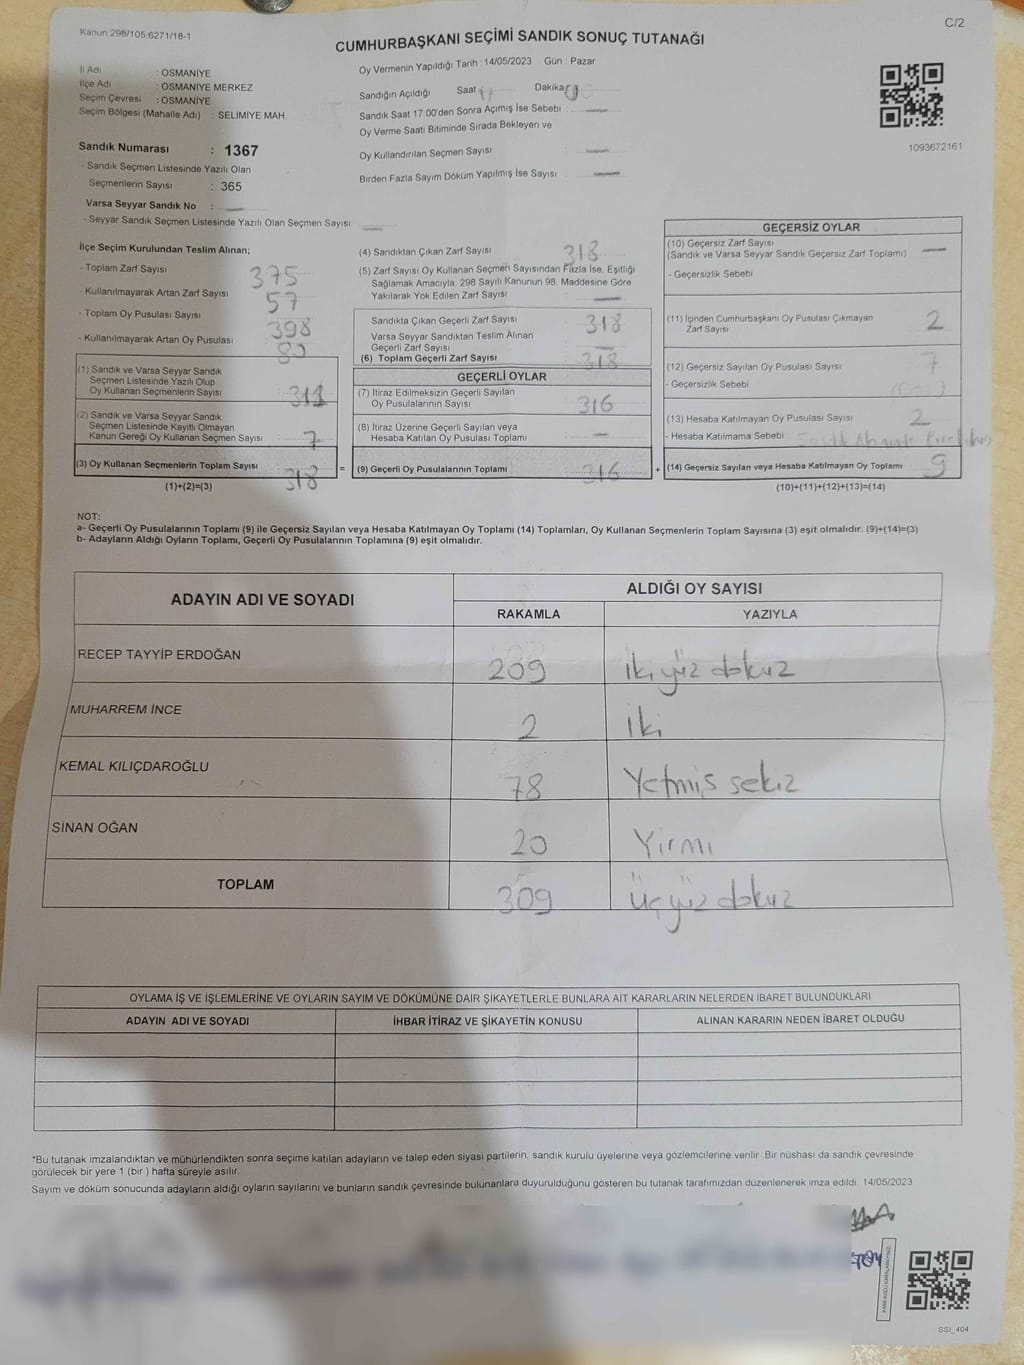 Kanun 298/105 6271/18-1
C/2
CUMHURBAŞKANI SEÇİMİ SANDIK SONUÇ TUTANAĞI
İl Adı : OSMANİYE
İlçe Adı : OSMANİYE MERKEZ
Seçim Çevresi : OSMANİYE
Seçim Bölgesi (Mahalle Adı) : SELIMIYE MAH.
Oy Vermenin Yapıldığı Tarih : 14/05/2023 Gün : Pazar
Sandığın Açıldığı Saat Dakika
Sandık Saat 17:00'den Sonra Açımış İse Sebebi
Oy Verme Saati Bitiminde Sırada Bekleyen ve
Oy Kullandırılan Seçmen Sayısı
Birden Fazla Sayım Döküm Yapılmış İse Sayısı
1093672161
Sandık Numarası : 1367
- Sandık Seçmen Listesinde Yazılı Olan
Seçmenlerin Sayısı : 365
Varsa Seyyar Sandık No :
- Seyyar Sandık Seçmen Listesinde Yazılı Olan Seçmen Sayısı
İlçe Seçim Kurulundan Teslim Alınan;
- Toplam Zarf Sayısı 375
- Kullanılmayarak Artan Zarf Sayısı 57
- Toplam Oy Pusulası Sayısı 398
- Kullanılmayarak Artan Oy Pusulası 80
(1) Sandık ve Varsa Seyyar Sandık
Seçmen Listesinde Yazılı Olup
Oy Kullanan Seçmenlerin Sayısı 311
(2) Sandık ve Varsa Seyyar Sandık
Seçmen Listesinde Kayıtlı Olmayan
Kanun Gereği Oy Kullanan Seçmen Sayısı 7
(3) Oy Kullanan Seçmenlerin Toplam Sayısı 318 =
(1)+(2)=(3)
(4) Sandıktan Çıkan Zarf Sayısı 318
(5) Zarf Sayısı Oy Kullanan Seçmen Sayısından Fazla İse, Eşitliği
Sağlamak Amacıyla, 298 Sayılı Kanunun 98. Maddesine Göre
Yakılarak Yok Edilen Zarf Sayısı
Sandıkta Çıkan Geçerli Zarf Sayısı 318
Varsa Seyyar Sandıktan Teslim Alınan
Geçerli Zarf Sayısı
(6) Toplam Geçerli Zarf Sayısı 318
GEÇERLİ OYLAR
(7) İtiraz Edilmeksizin Geçerli Sayılan
Oy Pusulalarının Sayısı 316
(8) İtiraz Üzerine Geçerli Sayılan veya
Hesaba Katılan Oy Pusulası Toplamı
(9) Geçerli Oy Pusulalarının Toplamı 316 +
GEÇERSİZ OYLAR
(10) Geçersiz Zarf Sayısı
(Sandık ve Varsa Seyyar Sandık Geçersiz Zarf Toplamı)
- Geçersizlik Sebebi
(11) İçinden Cumhurbaşkanı Oy Pusulası Çıkmayan
Zarf Sayısı 2
(12) Geçersiz Sayılan Oy Pusulası Sayısı 7
- Geçersizlik Sebebi
(13) Hesaba Katılmayan Oy Pusulası Sayısı 2
- Hesaba Katılmama Sebebi
(14) Geçersiz Sayılan veya Hesaba Katılmayan Oy Toplamı 9
(10)+(11)+(12)+(13)=(14)
NOT:
a- Geçerli Oy Pusulalarının Toplamı (9) ile Geçersiz Sayılan veya Hesaba Katılmayan Oy Toplamı (14) Toplamları, Oy Kullanan Seçmenlerin Toplam Sayısına (3) eşit olmalıdır. (9)+(14)=(3)
b- Adayların Aldığı Oyların Toplamı, Geçerli Oy Pusulalarının Toplamına (9) eşit olmalıdır.
ADAYIN ADI VE SOYADI
ALDIĞI OY SAYISI
RAKAMLA YAZIYLA
RECEP TAYYİP ERDOĞAN 209 iki yüz dokuz
MUHARREM İNCE 2 iki
KEMAL KILIÇDAROĞLU 78 Yetmiş sekiz
SİNAN OĞAN 20 Yirmi
TOPLAM 309 Üç yüz dokuz
OYLAMA İŞ VE İŞLEMLERİNE VE OYLARIN SAYIM VE DÖKÜMÜNE DAİR ŞİKAYETLERLE BUNLARA AİT KARARLARIN NELERDEN İBARET BULUNDUKLARI
ADAYIN ADI VE SOYADI İHBAR İTİRAZ VE ŞİKAYETİN KONUSU ALINAN KARARIN NEDEN İBARET OLDUĞU
*Bu tutanak imzalandıktan ve mühürlendikten sonra seçime katılan adayların ve talep eden siyasi partilerin, sandık kurulu üyelerine veya gözlemcilerine verilir. Bir nüshası da sandık çevresinde
görülecek bir yere 1 (bir) hafta süreyle asılır.
Sayım ve döküm sonucunda adayların aldığı oyların sayılarını ve bunların sandık çevresinde bulunanlara duyurulduğunu gösteren bu tutanak tarafımızdan düzenlenerek imza edildi. 14/05/2023
SSI_404